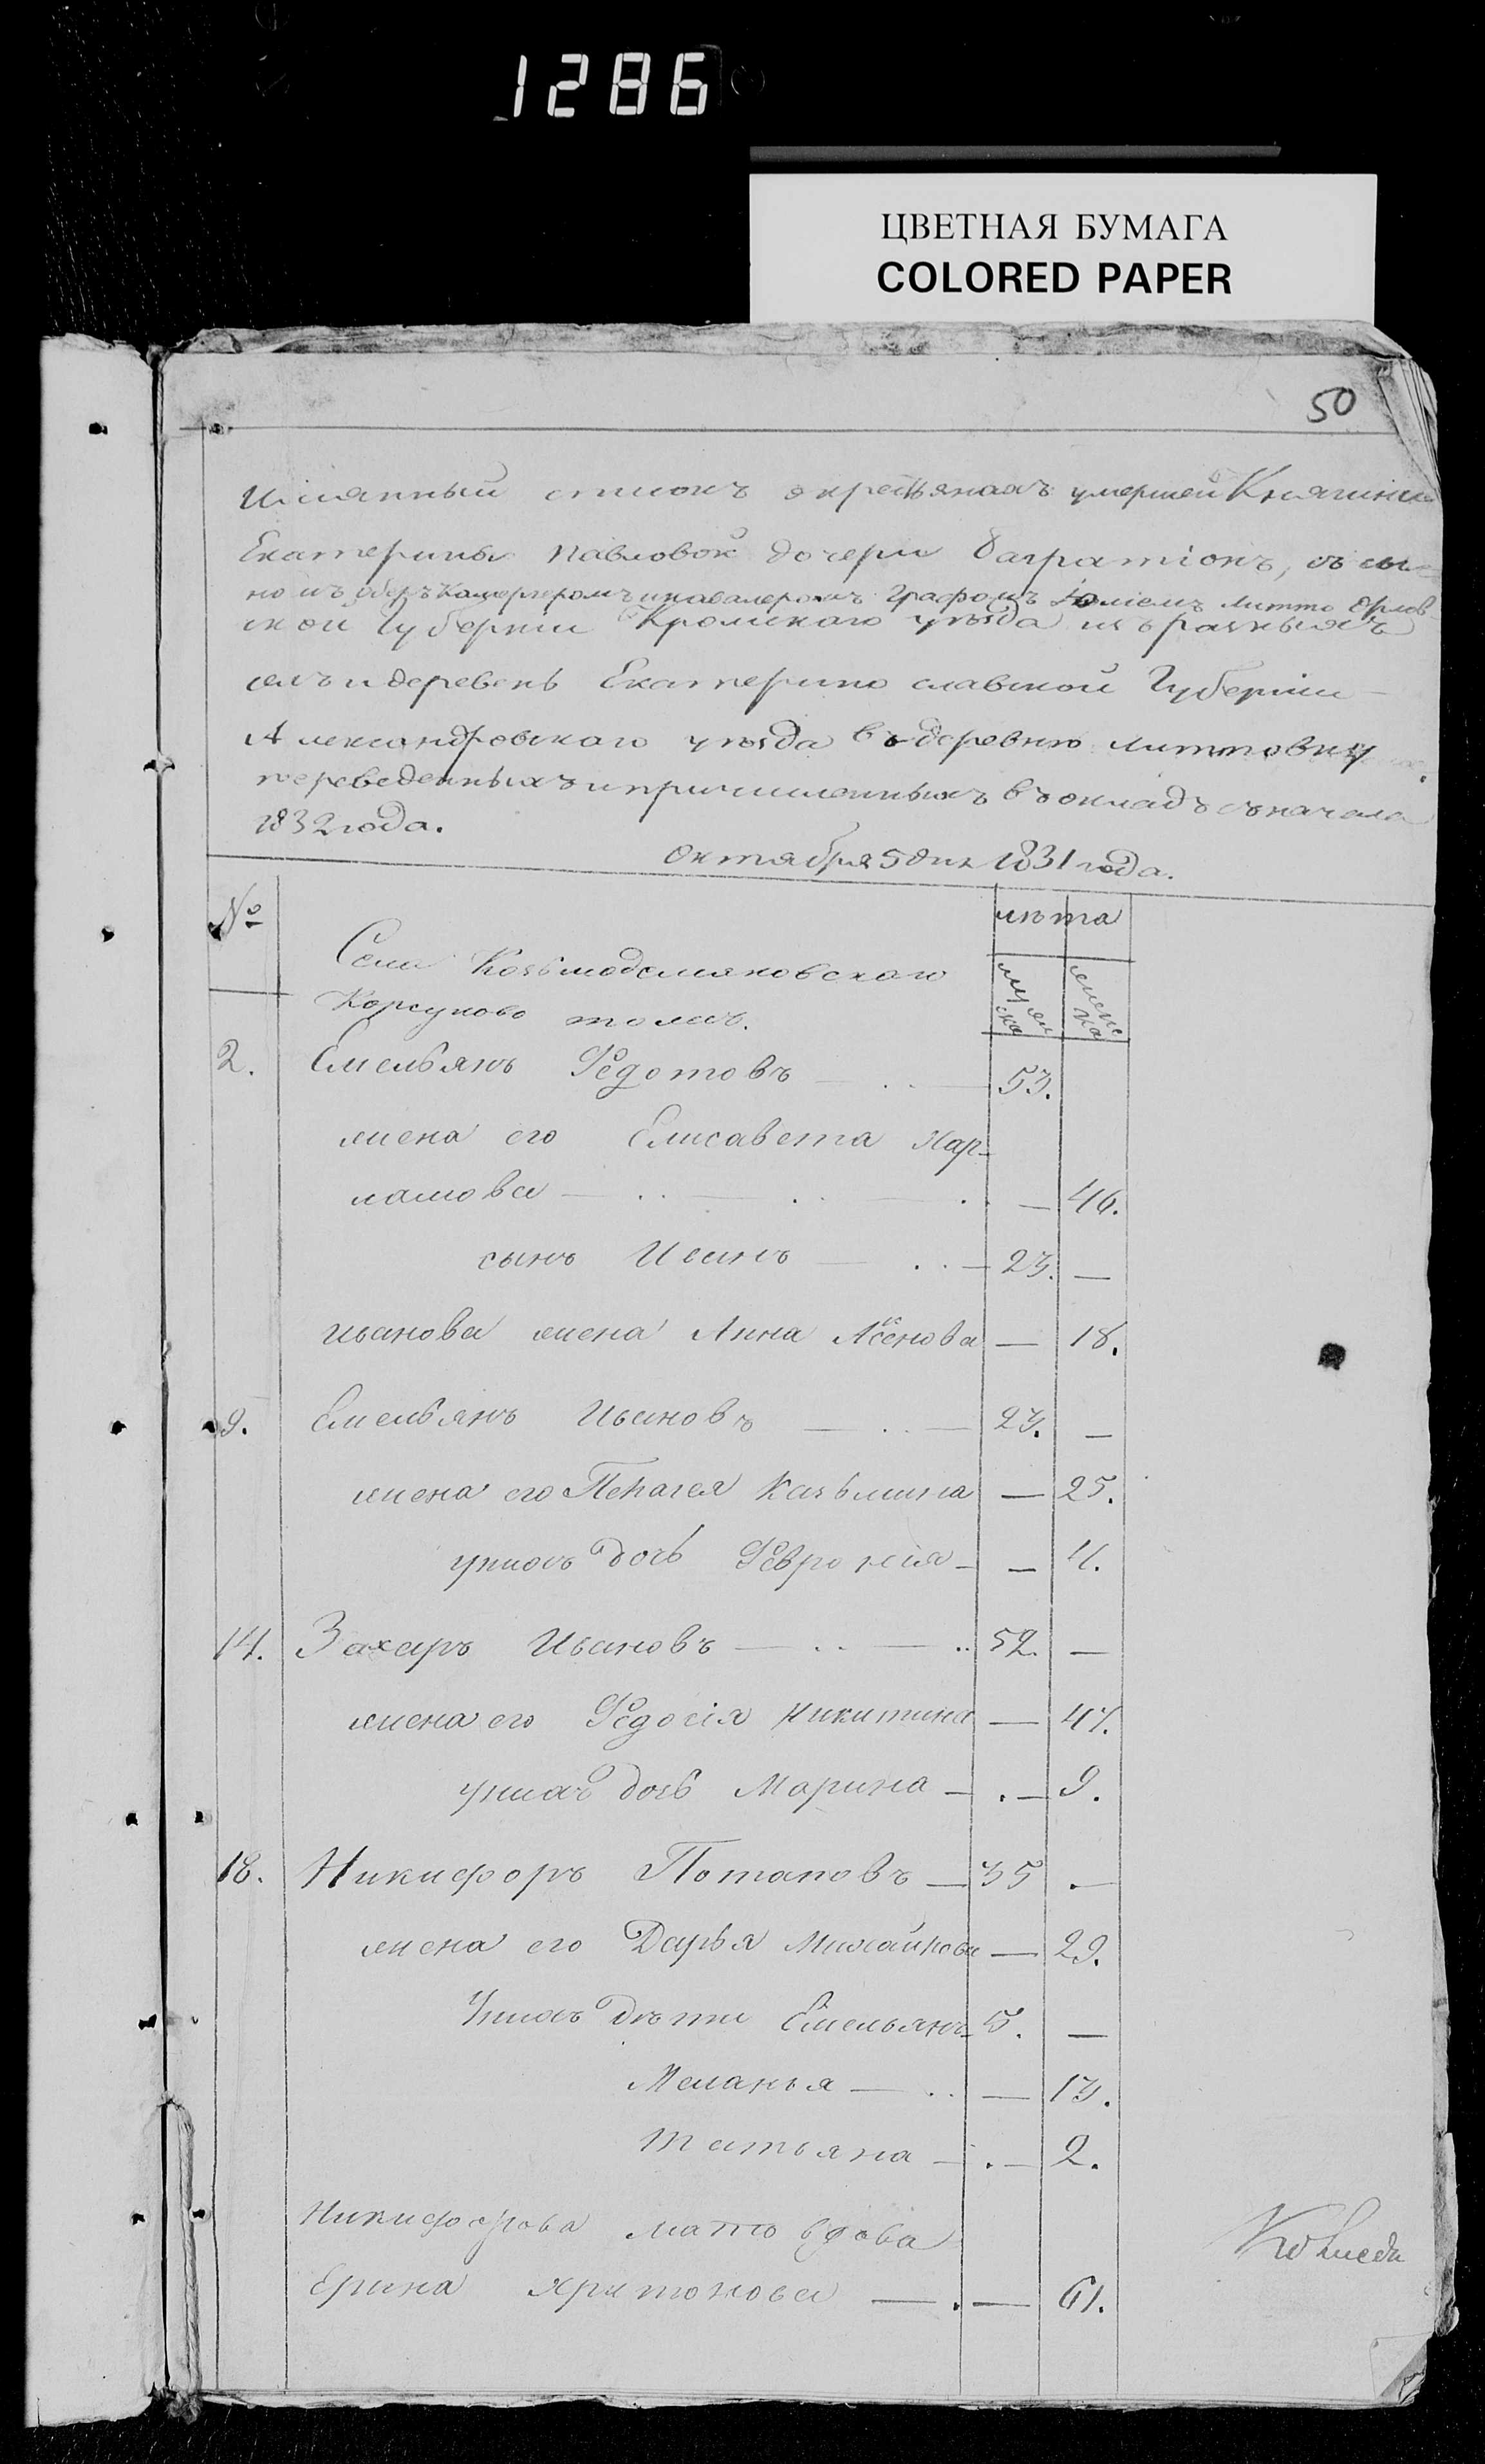 1286
ЦВЕТНАЯ БУМАГА
COLORED PAPER
50
Имянный списокъ окрестьянахъ умершей Княгини
Екатерины Павловой дочери Багратіонъ, съ сы-
номъ Оберъ Камергеромъ икавалеромъ Графомъ Юліемъ Литто Орлов
ской Губерніи Кромскаго уѣзда изъ разныхъ
селъ идеревень Екатерино славской Губерніи
Александровскаго уѣзда въ деревню Литтовку
переведенныхъ ипричисленныхъ въ окладъ съначала
1832 года.
Октября 5 дня 1831 года.
№ лѣта
Села Козьмодемяновскаго
Корсуково тожъ.
мужеска женска
2. Емельянъ Федотовъ 53.
жена его Елисавета Хар-
ламова — 46.
сынъ Иванъ 23. —
Иванова жена Анна Аксенова — 18.
9. Емельянъ Ивановъ 23. —
жена его Пелагея Казьмина — 25.
унихъ дочь Февронія — 4.
14. Захаръ Ивановъ 52. —
жена его Федосія Никитина — 47.
унихъ дочь Марина — 9.
18. Никифоръ Потаповъ 35 —
жена его Дарья Михайлова — 29.
Унихъ дѣти Емельянъ 5. —
Меланья — 13.
Татьяна — 2.
Никифорова мать вдова
Ерина Харитонова — 61.